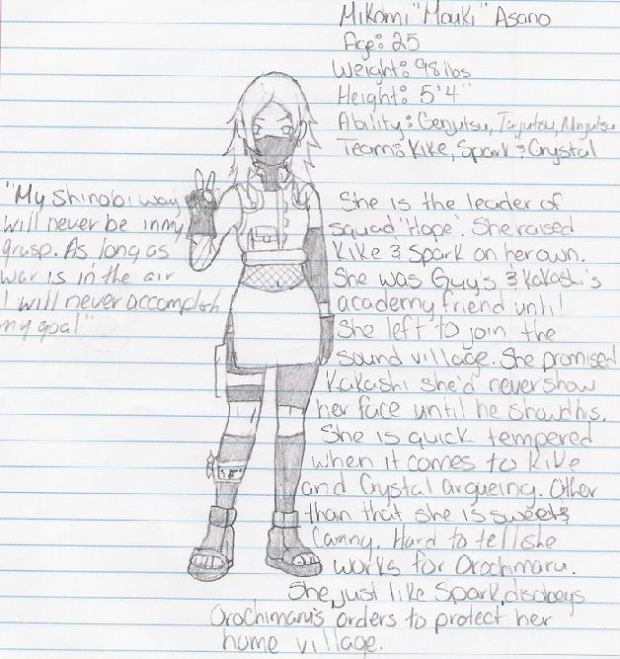 Mikomi "Mouki" Asano
Age: 25
Weight: 98 lbs
Height: 5'4"
Ability: Genjutsu, Taijutsu, Ninjutsu
Team: Kike, Spark & Crystal
"My Shinobi way
will never be in my
grasp. As long as
war is in the air
I will never accomplish
my goal"
She is the leader of
squad "Hope". She raised
Kike & Spark on her own.
She was Guy's & Kakashi's
academy friend until
she left to join the
sound village. She promised
Kakashi she'd never show
her face until he showd his.
She is quick tempered
when it comes to Kike
and Crystal argueing. Other
than that she is sweet &
Hard to tell she
works for Orochimaru.
She, just like Spark, disobeys
Orochimaru's orders to protect her
home village.